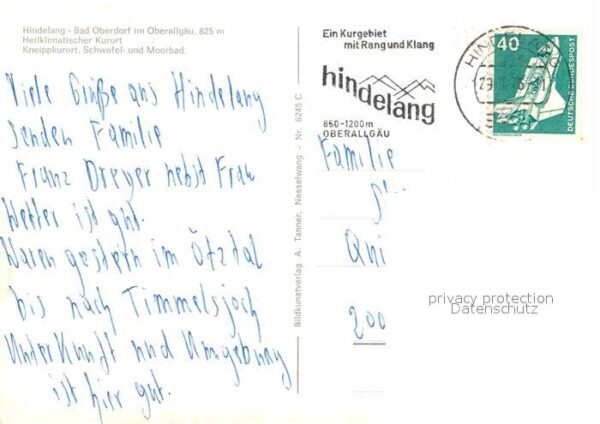 Hindelang - Bad Oberdorf im Oberallgäu, 825 m
Heilklimatischer Kurort
Kneippkurort, Schwefel- und Moorbad.
Viele Grüße aus Hindelang
senden Familie
Franz Dreyer nebst Frau
Wetter ist gut.
Waren gestern im Ötztal
bis nach Timmelsjoch
Unterkunft und Umgebung
ist hier gut.
Bildkunstverlag A. Tanner, Nesselwang - Nr. 6245 C
Ein Kurgebiet
mit Rang und Klang
hindelang
850-1200m
OBERALLGÄU
HINDELANG
40
DEUTSCHE BUNDESPOST
Familie
200
privacy protection
Datenschutz